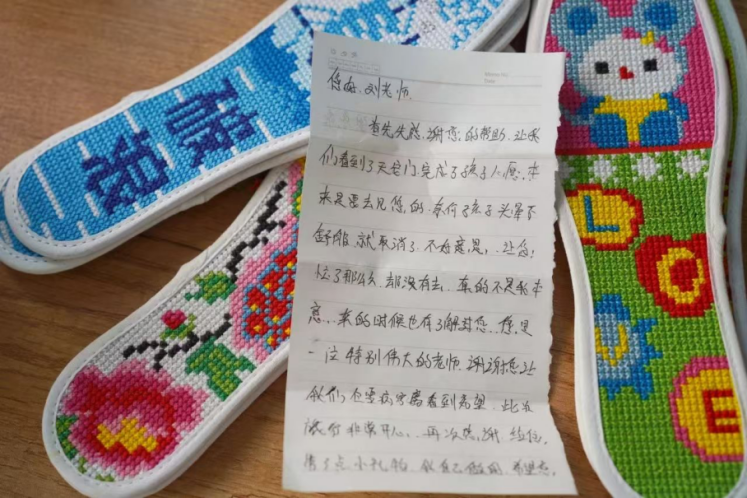 您好.刘老师.
首先先感谢您的帮助.让我
们看到了天安门.完成了孩子心愿.本
来是要去见您的.奈何孩子头晕不
舒服.就取消了.不好意思...让您
忙了那么久.却没有去..真的不是我本
意...来的时候也有了解过您..您是
一位特别伟大的老师.谢谢您让
我们 看到希望..此次
旅行非常开心...再次感谢.给您
带了点小礼物.我自己做的.希望您.
破浪
L
O
V
E